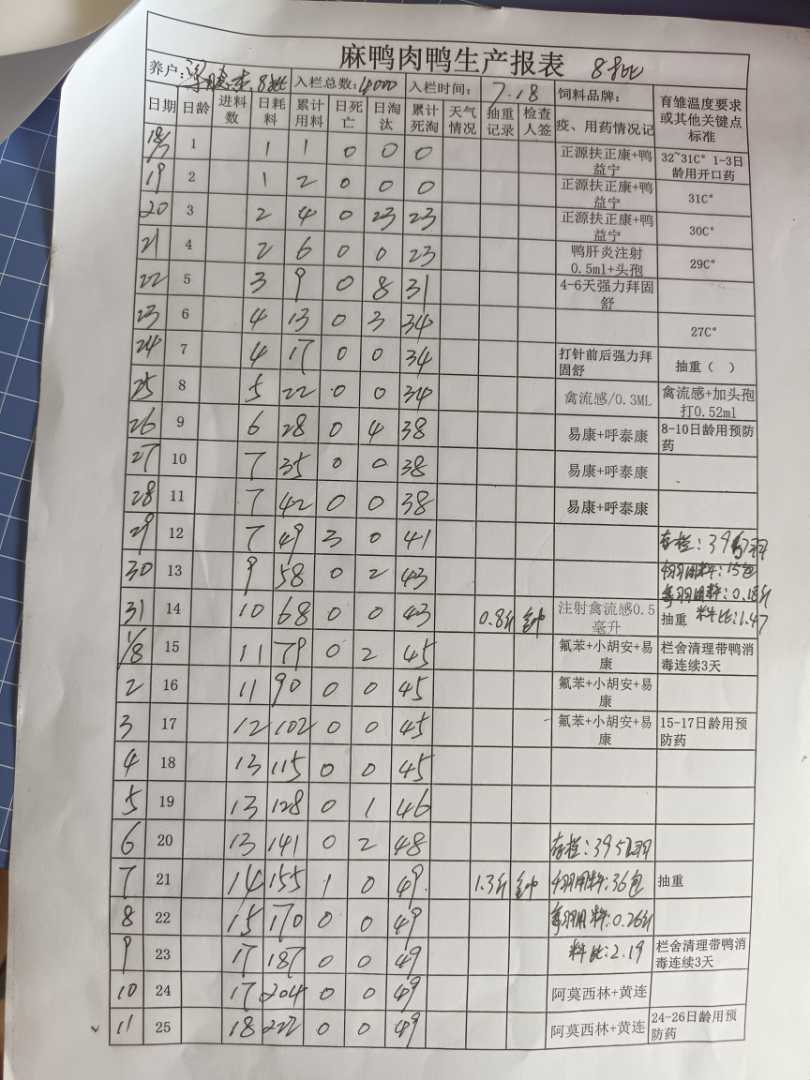 麻鸭肉鸭生产报表 8批
养户: 8批 入栏总数:4000 入栏时间: 7.18 饲料品牌: 育雏温度要求或其他关键点标准
日期 日龄 进料数 日耗料 累计用料 日死亡 日淘汰 累计死淘 天气情况 抽重记录 检查人签 疫、用药情况记
18/7 1 1 1 0 0 0 正源扶正康+鸭益宁 32~31C° 1-3日龄用开口药
19 2 1 2 0 0 0 正源扶正康+鸭益宁 31C°
20 3 2 4 0 23 23 正源扶正康+鸭益宁 30C°
21 4 2 6 0 0 23 鸭肝炎注射0.5ml+头孢 29C°
22 5 3 9 0 8 31 4-6天强力拜固舒
23 6 4 13 0 3 34 27C°
24 7 4 17 0 0 34 打针前后强力拜固舒 抽重（ ）
25 8 5 22 0 0 34 禽流感/0.3ML 禽流感+加头孢打0.52ml
26 9 6 28 0 4 38 易康+呼泰康 8-10日龄用预防药
27 10 7 35 0 0 38 易康+呼泰康
28 11 7 42 0 0 38 易康+呼泰康
29 12 7 49 3 0 41 存栏:
30 13 9 58 0 2 43 用料:15包
每羽用料:0.18斤
31 14 10 68 0 0 43 0.8斤 钟 注射禽流感0.5毫升 抽重 料比:1.47
1/8 15 11 79 0 2 45 氟苯+小胡安+易康 栏舍清理带鸭消毒连续3天
2 16 11 90 0 0 45 氟苯+小胡安+易康
3 17 12 102 0 0 45 氟苯+小胡安+易康 15-17日龄用预防药
4 18 13 115 0 0 45
5 19 13 128 0 1 46
6 20 13 141 0 2 48 存栏:3951羽
7 21 14 155 1 0 49 1.3斤 钟 用料:36包 抽重
8 22 15 170 0 0 49 每羽用料:0.26斤
9 23 17 187 0 0 49 料比:2.19 栏舍清理带鸭消毒连续3天
10 24 17 204 0 0 49 阿莫西林+黄连
11 25 18 222 0 0 49 阿莫西林+黄连 24-26日龄用预防药